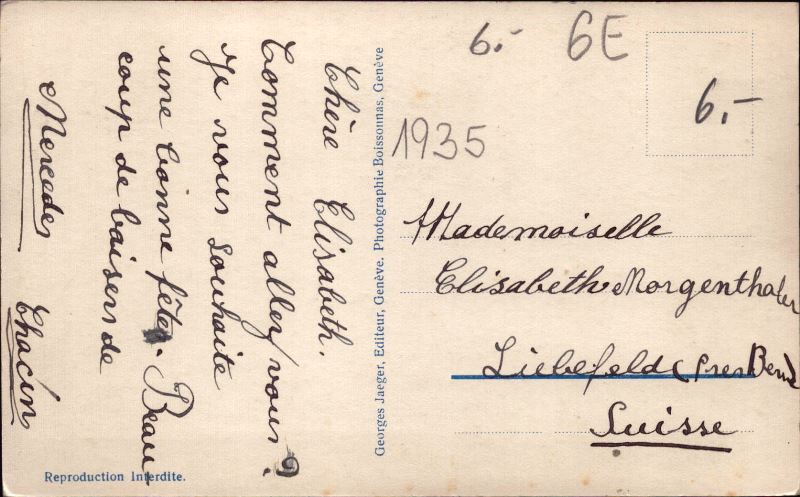 Chère Elisabeth.
Comment allez vous?
Je vous souhaite
une bonne fête. Beau
coup de baisers de
Mercedes Chacín
Georges Jaeger, Editeur, Genève. Photographie Boissonnas, Genève
Reproduction Interdite.
6.- 6E
6.-
1935
Mademoiselle
Elisabeth Morgenthaler
Liebefeld (Pres Berne
Suisse